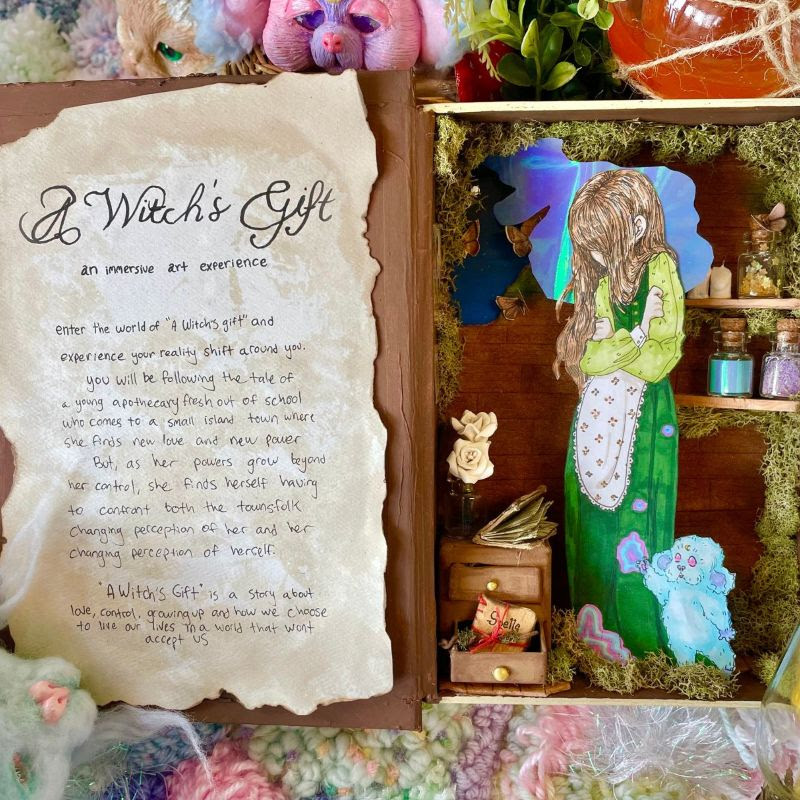 A Witch's Gift
an immersive art experience
enter the world of "A Witch's gift" and
experience your reality shift around you.
you will be following the tale of
a young apothecary fresh out of school
who comes to a small island town where
she finds new love and new power
But, as her powers grow beyond
her control, she finds herself having
to confront both the townsfolk
changing perception of her and her
changing perception of herself.
"A Witch's Gift" is a story about
love, control, growing up and how we choose
to live our lives in a world that wont
accept us
Spells